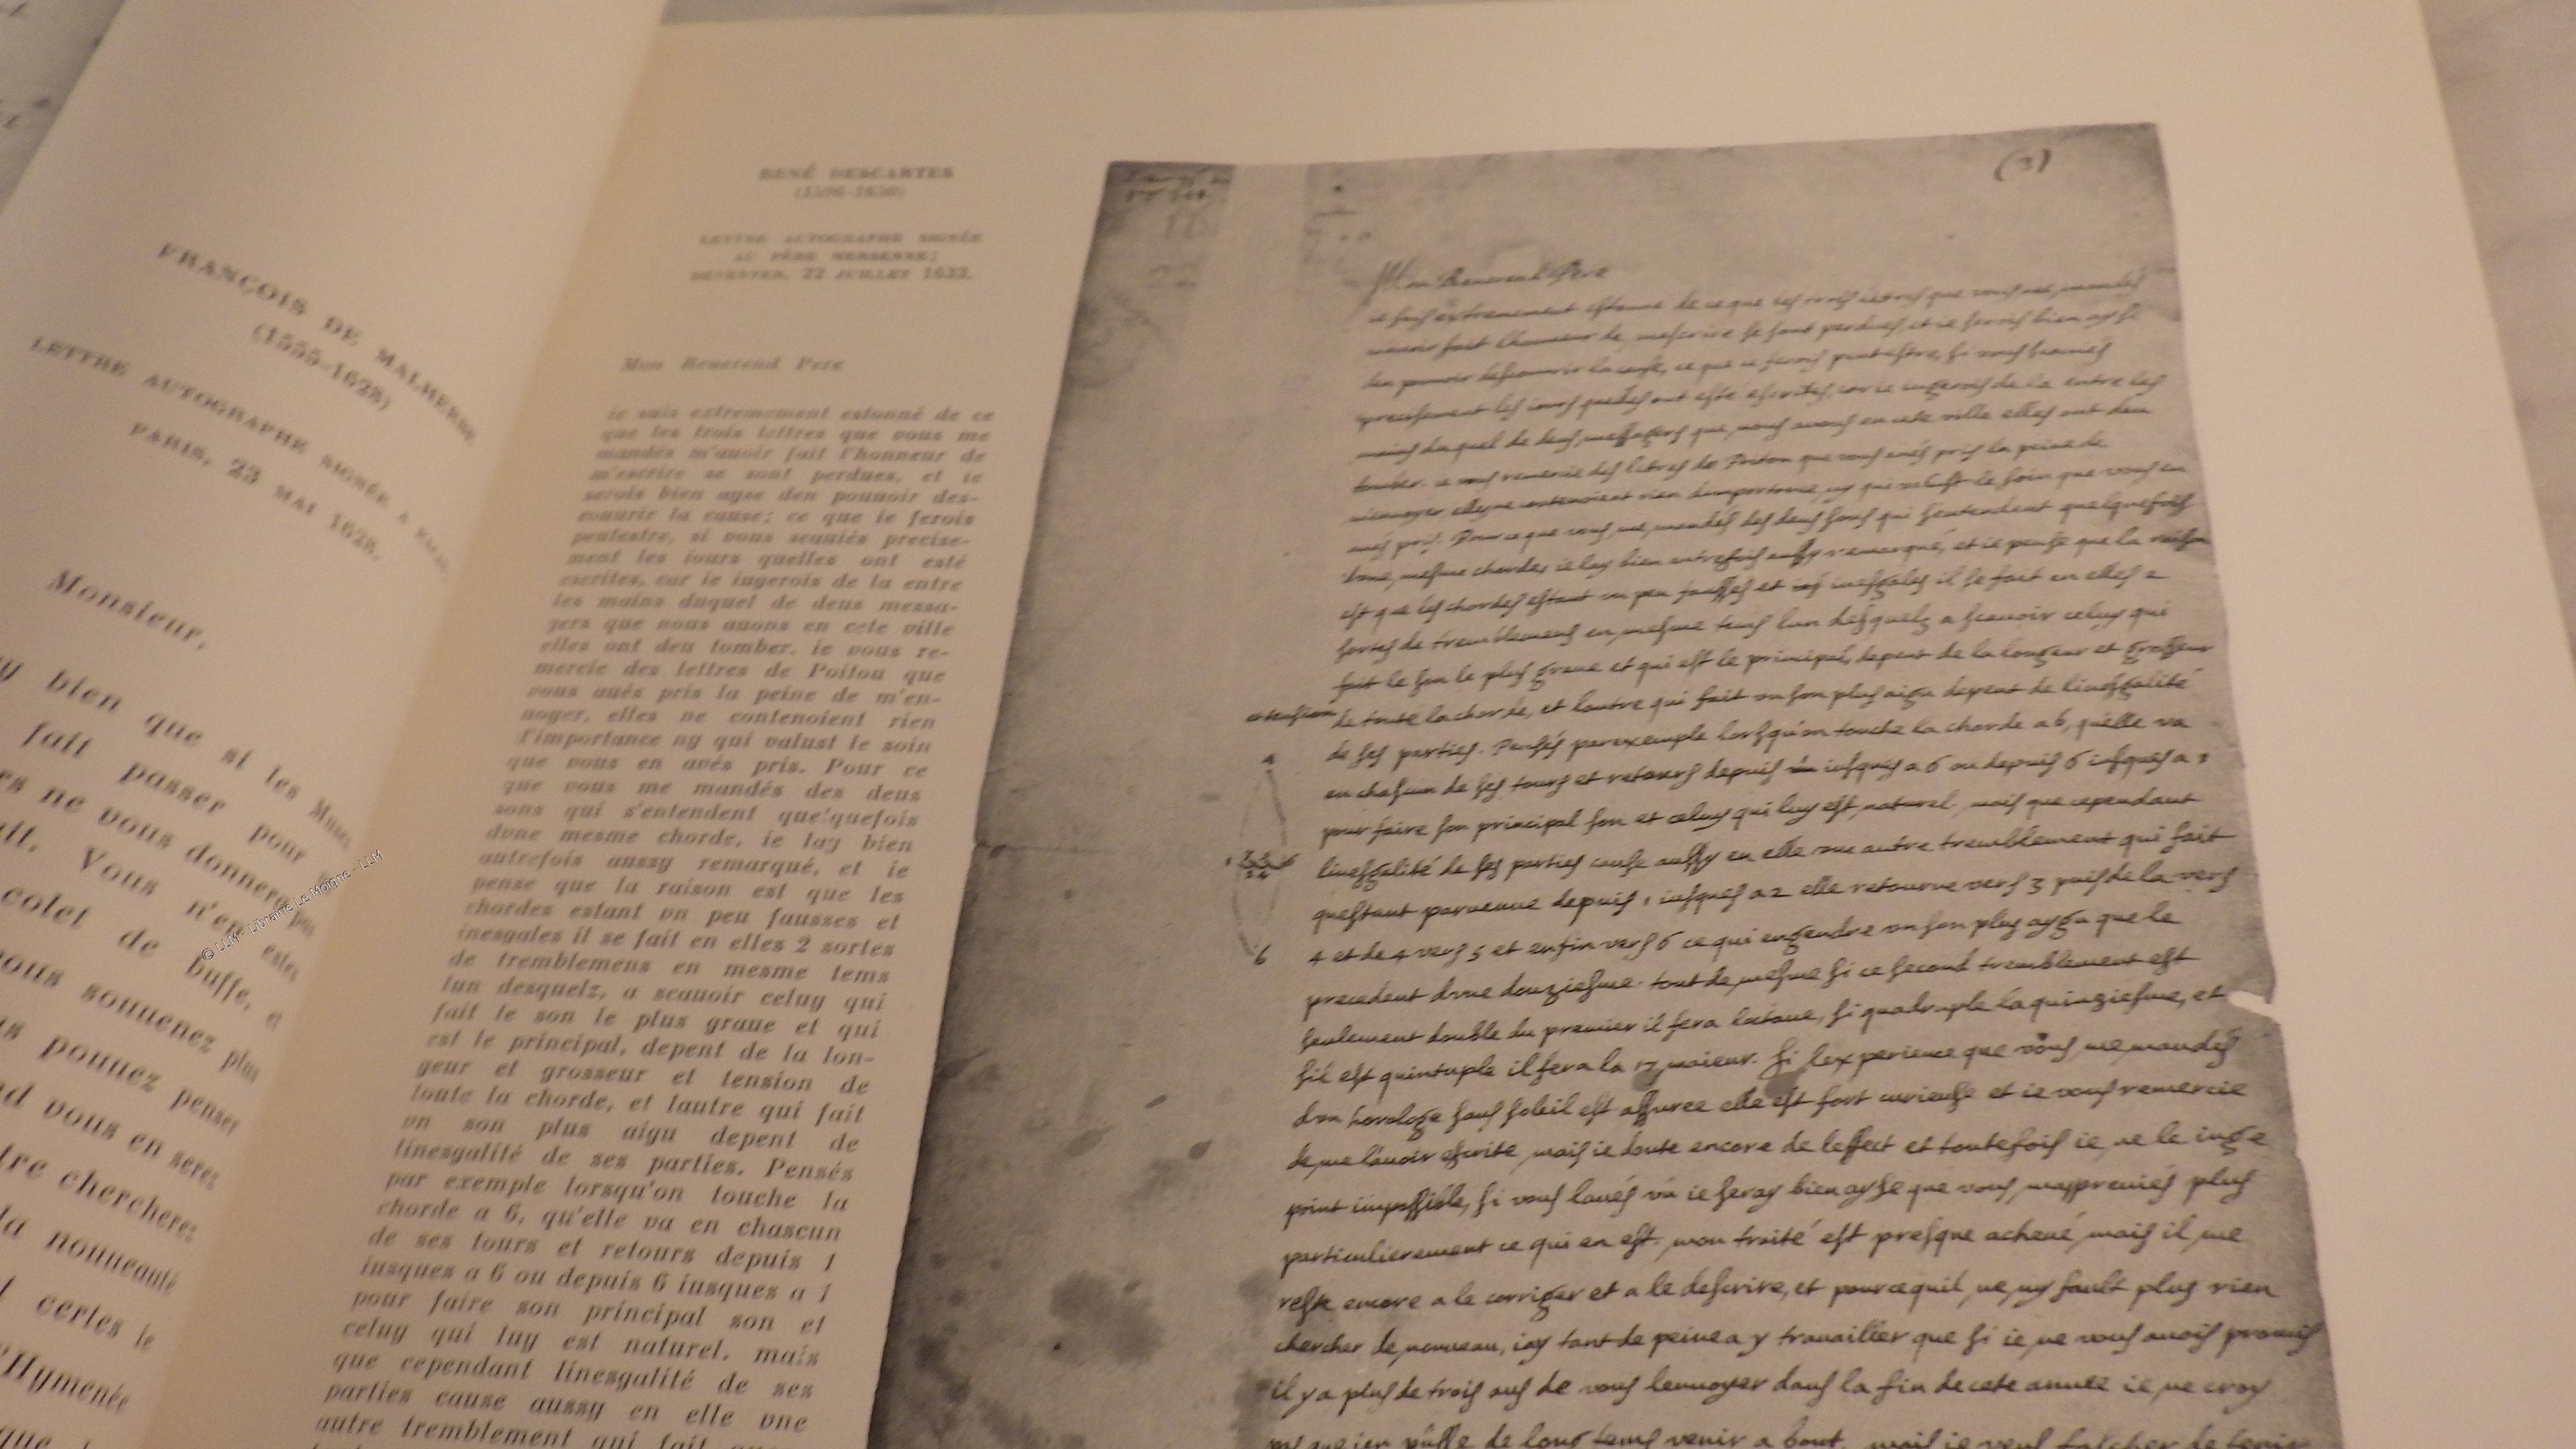 FRANÇOIS DE MALHERBE
(1555-1628)
LETTRE AUTOGRAPHE SIGNÉE A
PARIS, 23 MAI 1628.
Monsieur,
y bien que si les Muses
fait passer pour
rs ne vous donnera pas
Vous n'en estes
colet de buffe, et
ous souuenez plus
us pouuez penser
d vous en seres
tre cherchere
ta nouueauté
certes ie
'Hymenée
que
© LLM - Librairie Le Moigne - LLM
RENÉ DESCARTES
(1596-1650)
LETTRE AUTOGRAPHE SIGNÉE
AU PÈRE MERSENNE;
DEVENTER, 22 JUILLET 1633.
Mon Reuerend Pere
ie suis extremement estonné de ce
que les trois lettres que vous me
mandés m'auoir fait l'honneur de
m'escrire se sont perdues, et ie
serois bien ayse den pouuoir des-
couurir la cause; ce que ie ferois
peutestre, si vous scauiés precise-
ment les iours quelles ont esté
escrites, car ie iugerois de la entre
les mains duquel de deus messa-
gers que nous auons en cete ville
elles ont deu tomber. ie vous re-
mercie des lettres de Poitou que
vous aués pris la peine de m'en-
uoyer, elles ne contenoient rien
d'importance ny qui valust le soin
que vous en avés pris. Pour ce
que vous me mandés des deus
sons qui s'entendent quelquefois
dvne mesme chorde, ie lay bien
autrefois aussy remarqué, et ie
pense que la raison est que les
chordes estant vn peu fausses et
inesgales il se fait en elles 2 sortes
de tremblemens en mesme tems
lun desquelz, a scauoir celuy qui
fait le son le plus graue et qui
est le principal, depent de la lon-
geur et grosseur et tension de
toute la chorde, et lautre qui fait
vn son plus aigu depent de
linesgalité de ses parties. Pensés
par exemple lorsqu'on touche la
chorde a 6, qu'elle va en chascun
de ses tours et retours depuis 1
iusques a 6 ou depuis 6 iusques a 1
pour faire son principal son et
celuy qui luy est naturel. mais
que cependant linesgalité de ses
parties cause aussy en elle vne
autre tremblement qui fait
(3)
Mon Reuerend Pere
ie suis extremement estonné de ce que les trois lettres que vous me mandés
mauoir fait lhonneur de mescrire se sont perdues et ie serois bien ayse
den pouuoir descouurir la cause, ce que ie ferois peutestre, si vous scauiés
precisement les iours quelles ont esté escrites, car ie iugerois de la entre les
mains duquel de deus messagers que nous auons en cete ville elles ont deu
tomber. ie vous remercie des lettres de Poitou que vous aués pris la peine de
menuoyer, elles ne contenoient rien dimportance, ny qui valust le soin que vous en
aués pris. Pour ce que vous me mandés des deus sons qui sentendent quelquefois
dvne mesme chorde, ie lay bien autrefois aussy remarqué, et ie pense que la raison
est que les chordes estant vn peu fausses et inesgales il se fait en elles 2
sortes de tremblemens en mesme tems lun desquelz a scauoir celuy qui
fait le son le plus graue et qui est le principal, depent de la longeur et grosseur
et tension de toute la chorde, et lautre qui fait vn son plus aigu depent de linesgalité
de ses parties. Pensés par exemple lorsqu'on touche la chorde a 6, quelle va
en chascun de ses tours et retours depuis iusques a 6 ou depuis 6 iusques a 1
pour faire son principal son et celuy qui luy est naturel. mais que cependant
linesgalité de ses parties cause aussy en elle vne autre tremblement qui fait
questant paruenue depuis 1 iusques a 2 elle retourne vers 3 puis de la vers
4 et de 4 vers 5 et enfin vers 6 ce qui engendre vn son plus aygu que le
6
precedent dvne douziesme. tout de mesme si ce second tremblement est
seulement double du premier il fera loctaue, si quadruple la quinziesme, et
sil est quintuple il fera la 17 maieur. Si lexperience que vous me mandés
dun horologe sans soleil est assuree elle est fort curieuse et ie vous remercie
de me lauoir escrite, mais ie doute encore de leffect et toutefois ie ne le iuge
point impossible, si vous laués vu ie seray bien ayse que vous mappreniés plus
particulierement ce qui en est. mon traité est presque acheué mais il me
reste encore a le corriger et a le descrire, et pourcequil ne my fault plus rien
chercher de nouueau, iay tant de peine a y trauailler que si ie ne vous auois promis
il y a plus de trois ans de vous lenuoyer dans la fin de cete annee ie ne croy
pas que ien pusse de long tems venir a bout. mais ie veux tascher de tenir